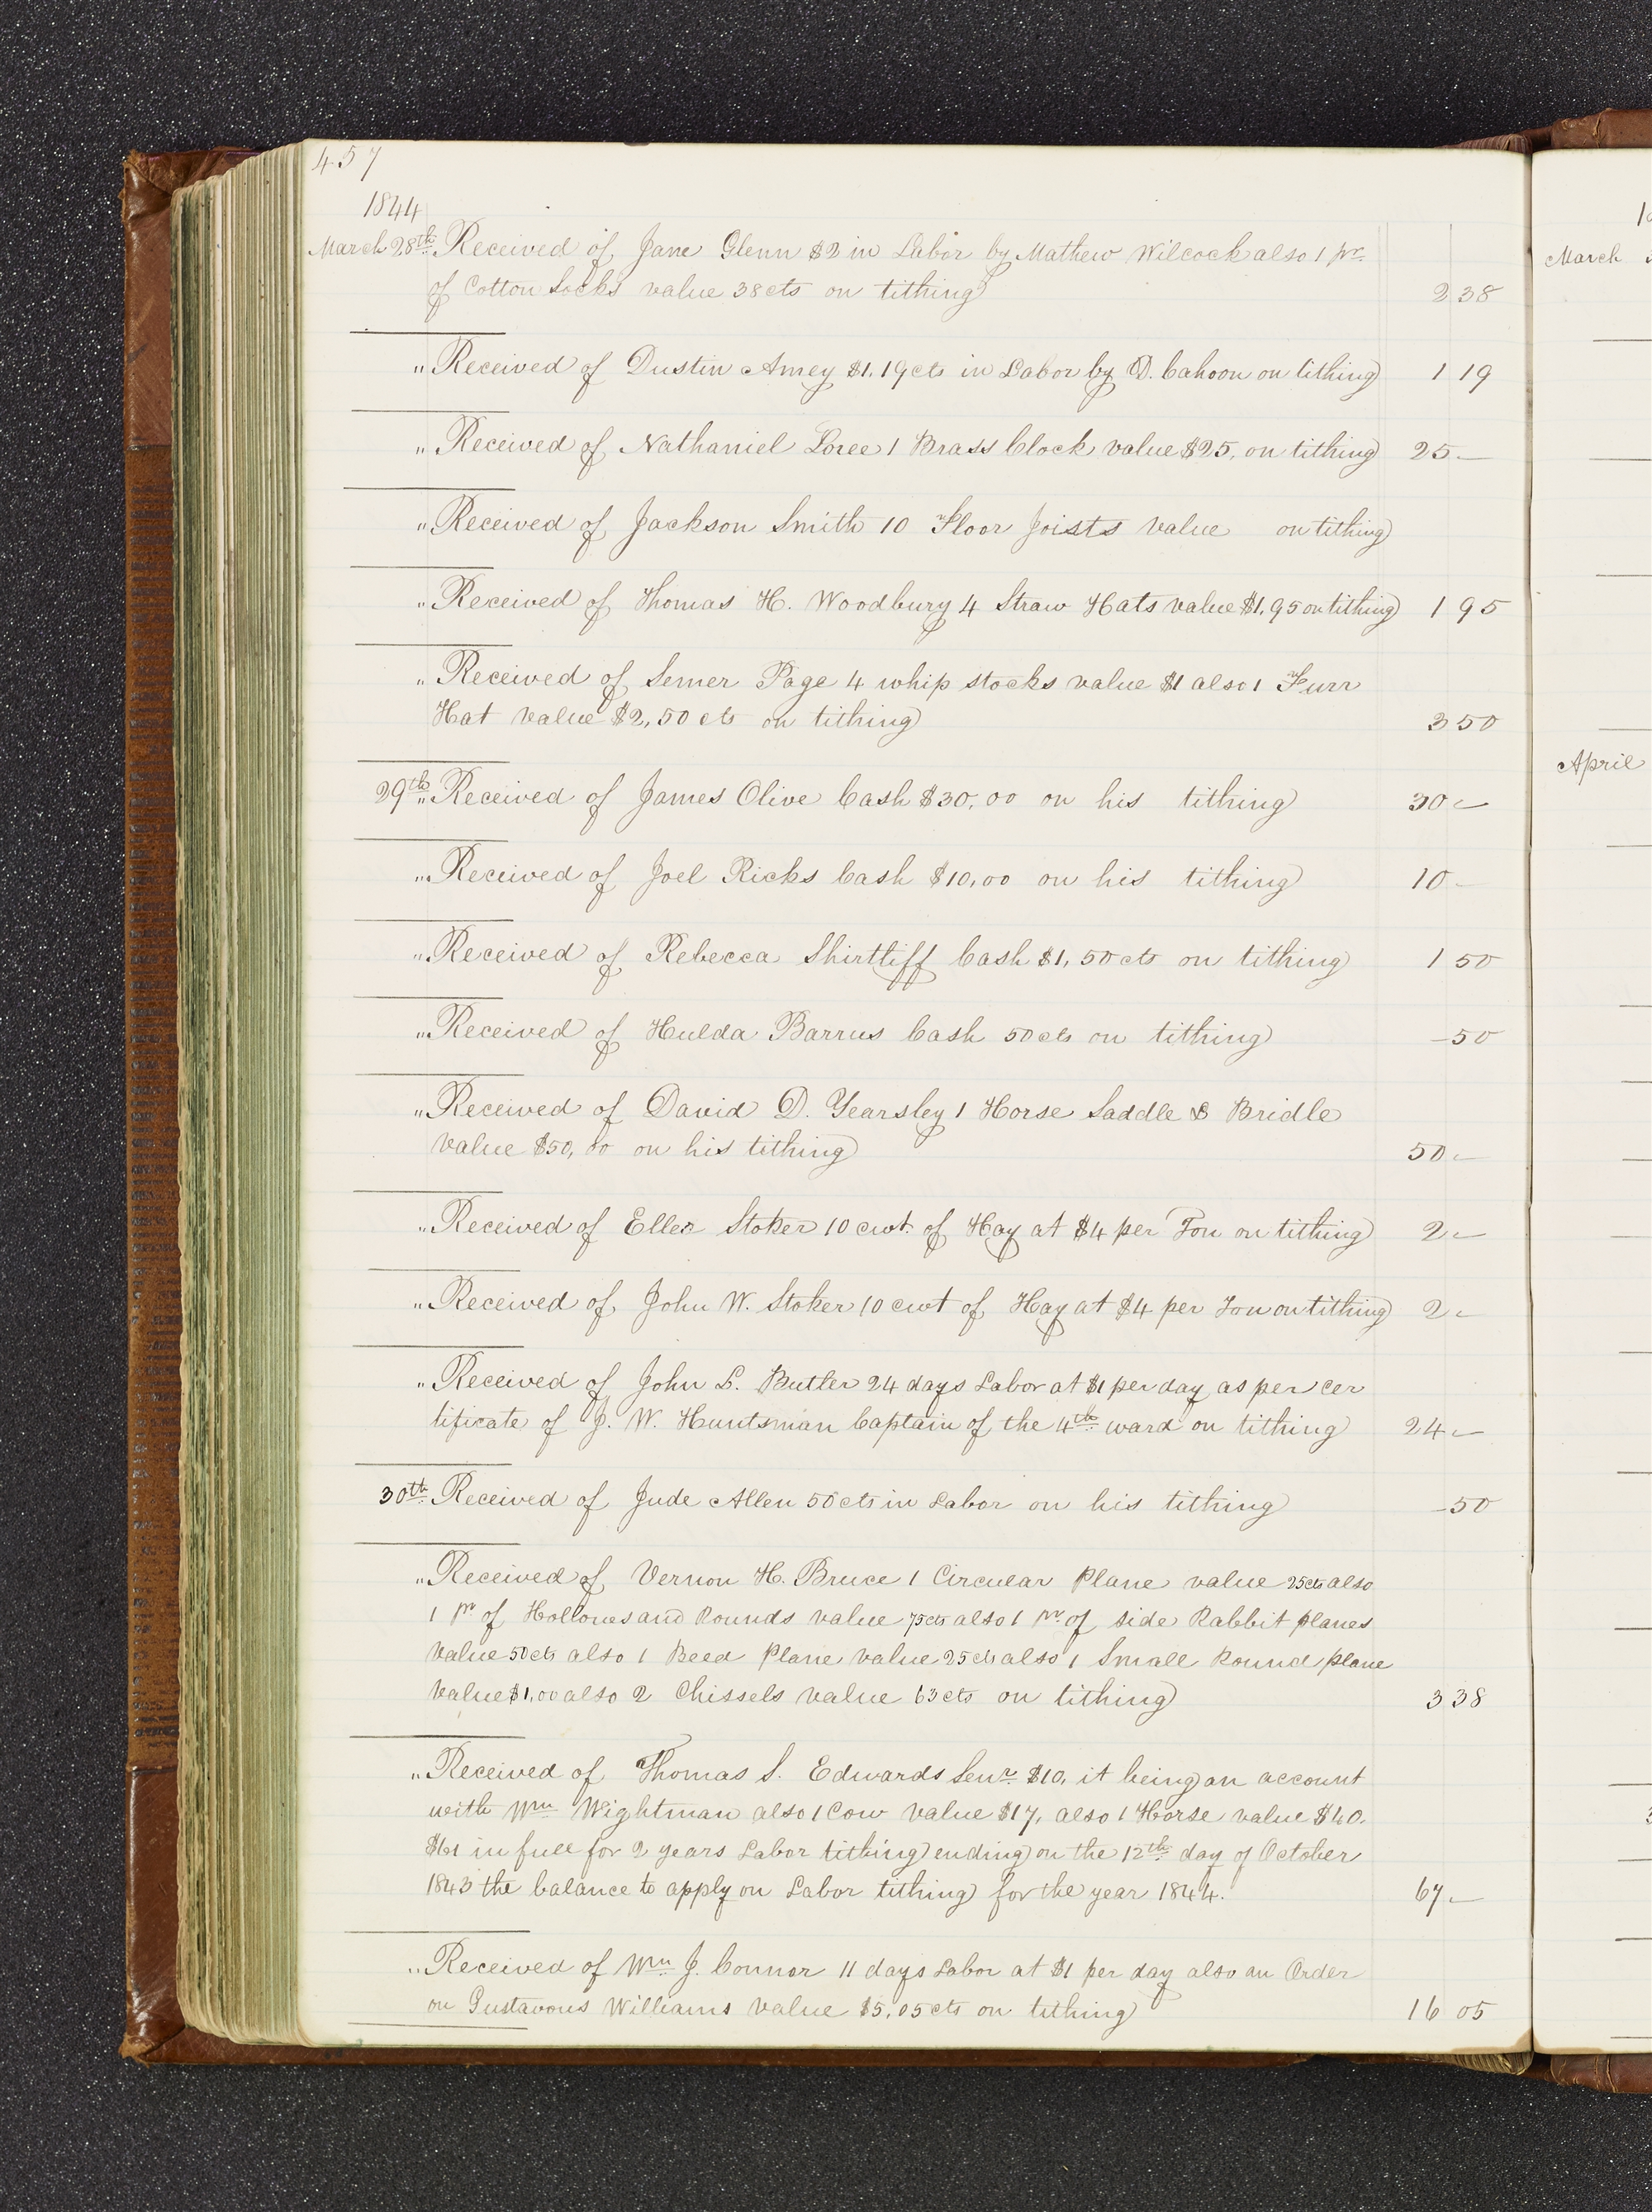 457
1844
March 28th Received of Jane Glenn $2 in Labor by Mathew Wilcock also 1 pr.
of Cotton Socks value 38cts on tithing 2 38
" Received of Dustin Amey $1,19cts in Labor by D. Cahoon on tithing 1 19
" Received of Nathaniel Loree 1 Brass Clock value $25, on tithing 25 —
" Received of Jackson Smith 10 Floor Joists value on tithing
" Received of Thomas H. Woodbury 4 Straw Hats value $1,95 on tithing 1 95
" Received of Semer Page 4 whip stocks value $1 also 1 Furr
Hat value $2,50 cts on tithing 3 50
29th " Received of James Olive Cash $30,00 on his tithing 30 —
" Received of Joel Ricks Cash $10,00 on his tithing 10 -
" Received of Rebecca Shirtliff Cash $1,50cts on tithing 1 50
" Received of Hulda Barrus Cash 50cts on tithing - 50
" Received of David D. Yearsley 1 Horse Saddle & Bridle
value $50,00 on his tithing 50 —
" Received of Eller Stoker 10 cwt. of Hay at $4 per Ton on tithing 2 —
" Received of John W. Stoker 10 cwt of Hay at $4 per Ton on tithing 2 -
" Received of John L. Butler 24 days Labor at $1 per day as per cer
tificate of J. W. Huntsman Captain of the 4th ward on tithing 24 —
30th Received of Jude Allen 50cts in Labor on his tithing - 50
" Received of Vernon H. Bruce 1 Circular Plane value 25cts also
1 pr of Hollows and Rounds value 75cts also 1 pr. of side Rabbit planes
value 50cts also 1 Beed Plane value 25cts also 1 Small Round plane
value $1,00 also 2 Chissels value 63cts on tithing 3 38
" Received of Thomas S. Edwards Senr. $10, it being an account
with Wm Wightman also 1 Cow value $17, also 1 Horse value $40.
$61 in full for 2 years Labor tithing ending on the 12th day of October
1843 the balance to apply on Labor tithing for the year 1844. 67 —
" Received of Wm J. Connor 11 days Labor at $1 per day also an Order
on Gustavous Williams value $5,05cts on tithing 16 05
March
April